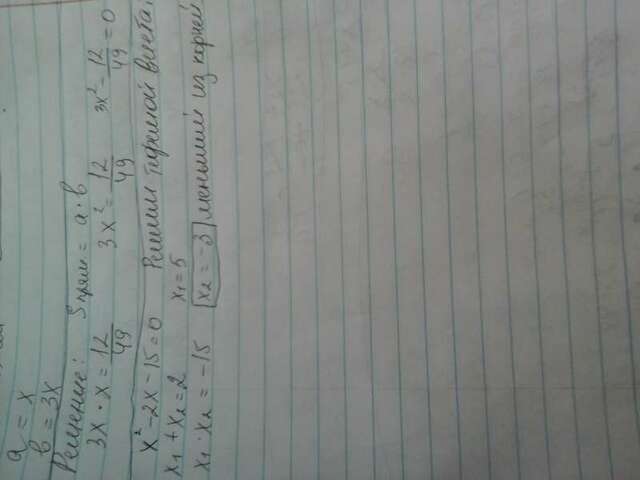 a = x
b = 3x
Решение: Sпрям. = a · b
3x · x = 12/49 3x² = 12/49 3x² - 12/49 = 0
x² - 2x - 15 = 0 Решим теоремой Виета:
x₁ + x₂ = 2 x₁ = 5
x₁ · x₂ = -15 x₂ = -3 меньший из корней